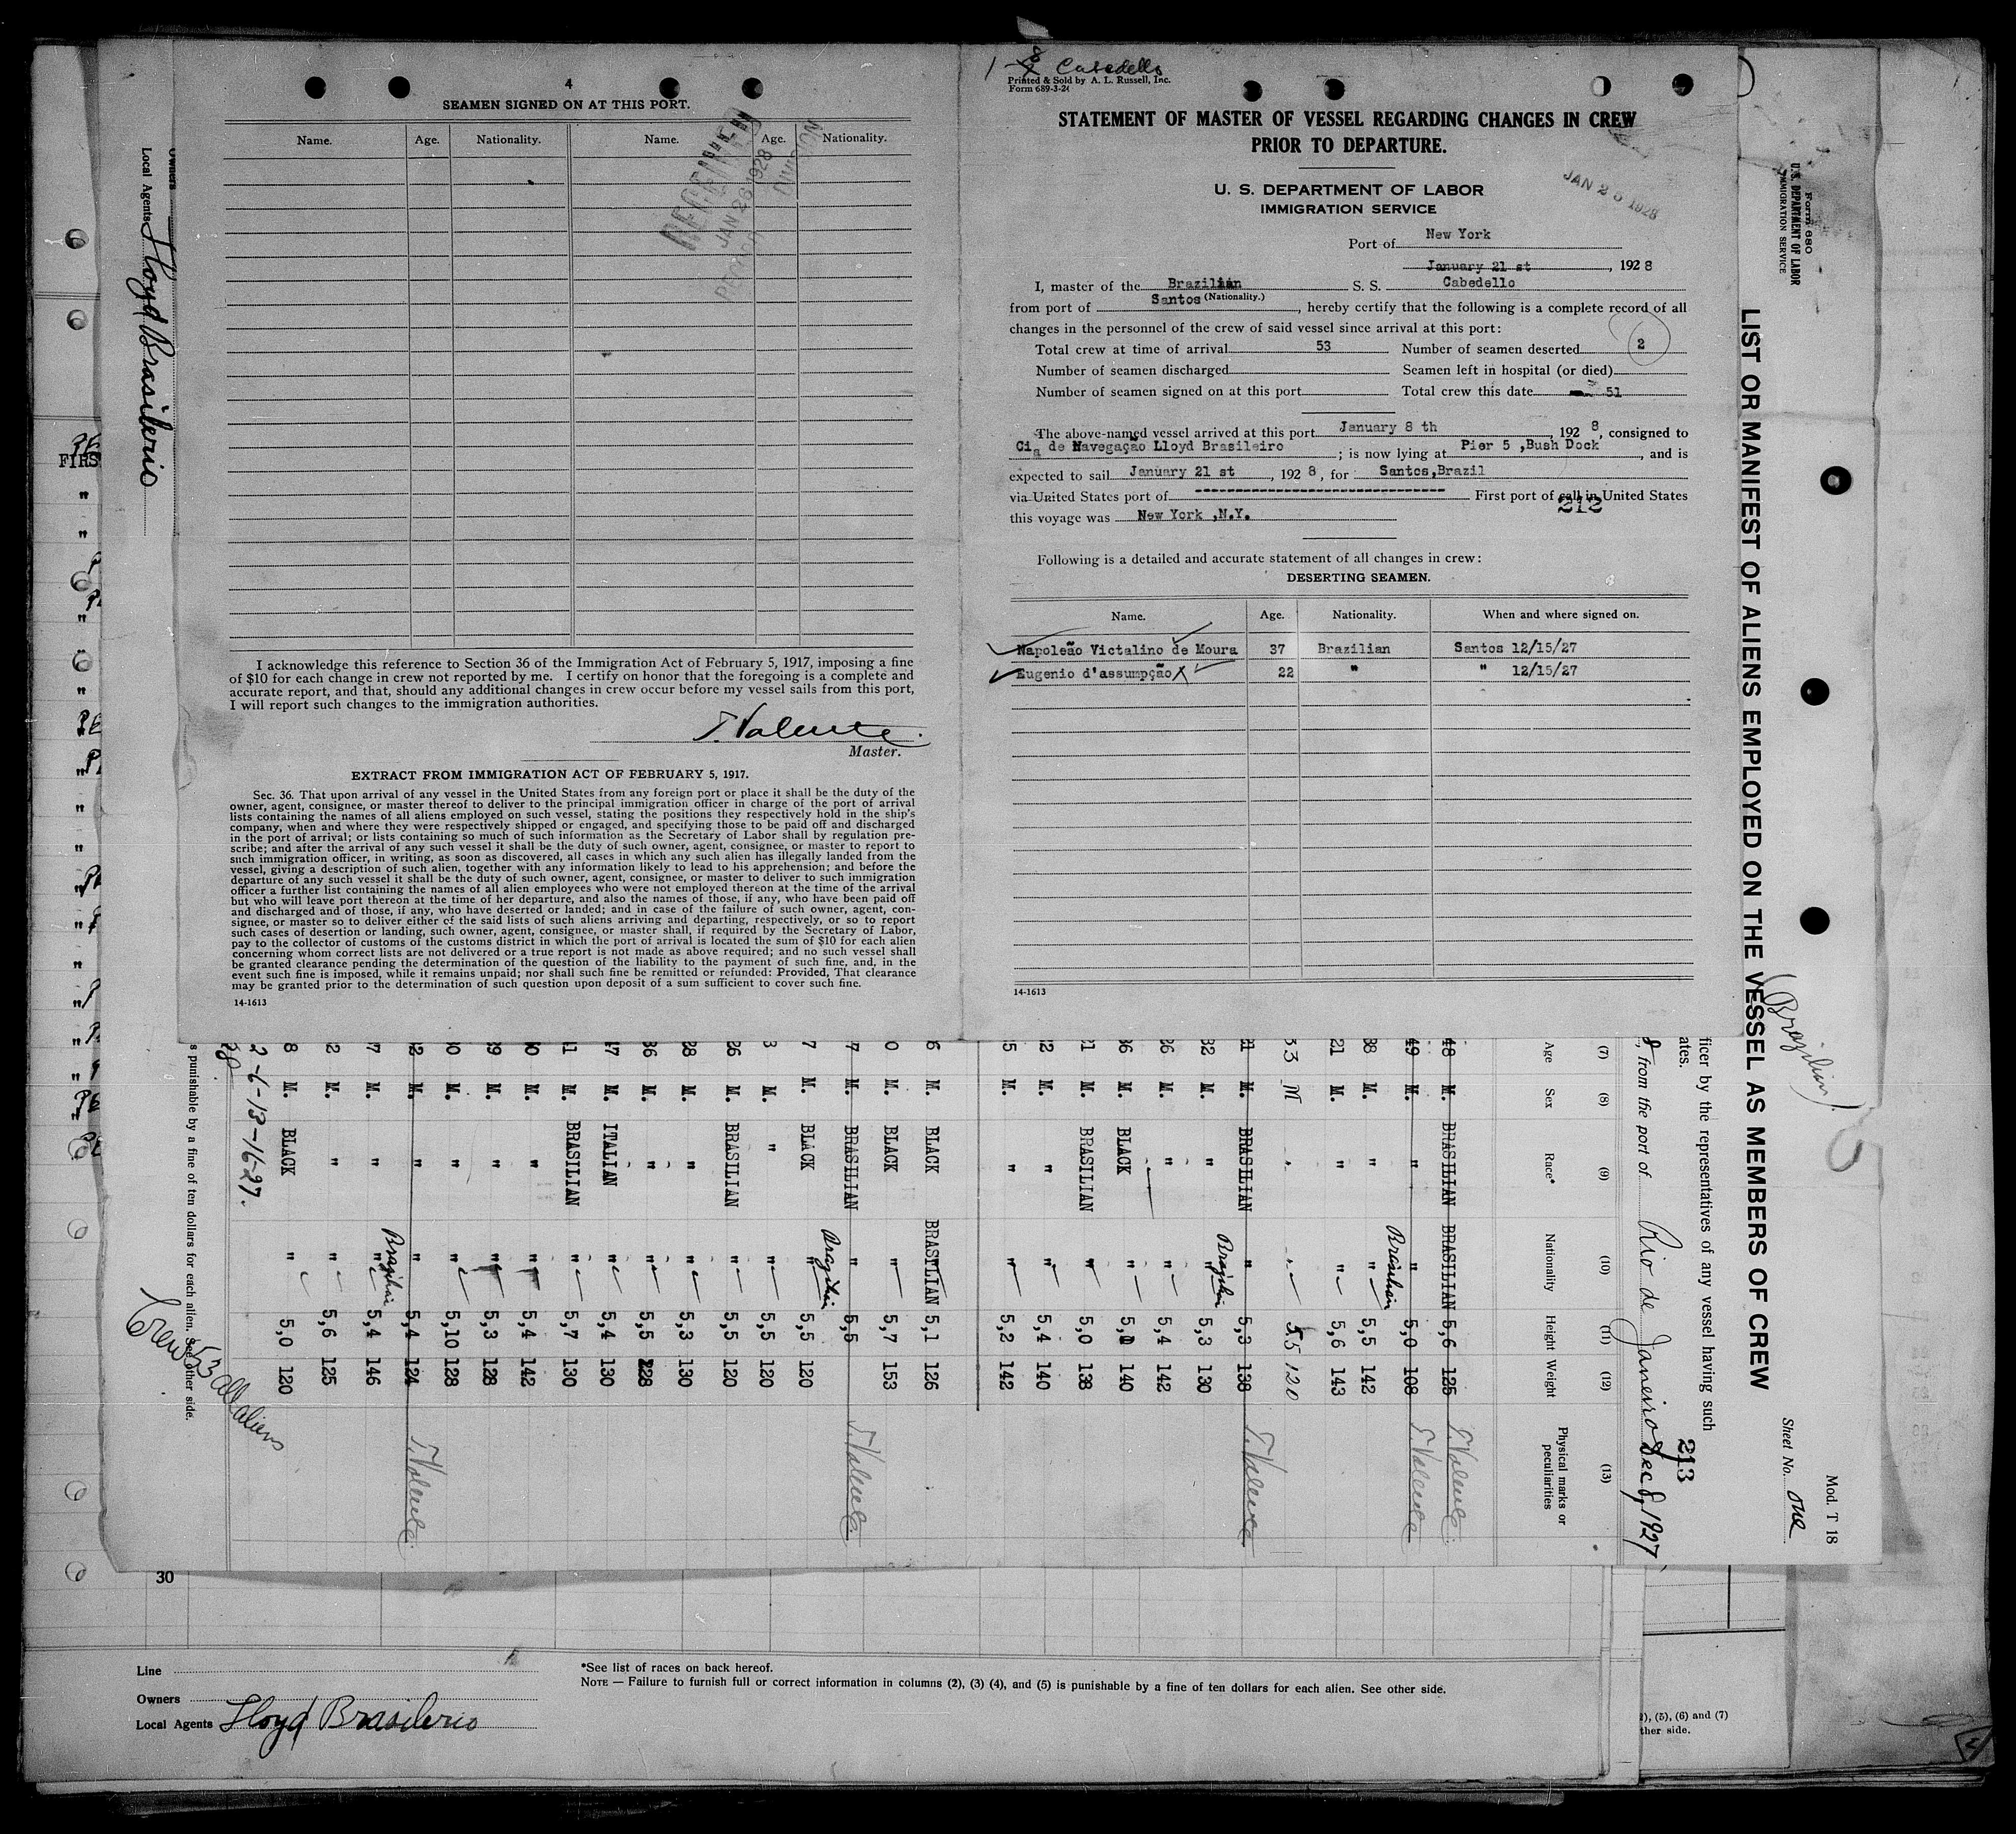 4
SEAMEN SIGNED ON AT THIS PORT.
Name. Age. Nationality. Name. Age. Nationality.
RECEIVED
JAN 26 1928
DIVISION
I acknowledge this reference to Section 36 of the Immigration Act of February 5, 1917, imposing a fine
of $10 for each change in crew not reported by me. I certify on honor that the foregoing is a complete and
accurate report, and that, should any additional changes in crew occur before my vessel sails from this port,
I will report such changes to the immigration authorities.
T. Valente.
Master.
EXTRACT FROM IMMIGRATION ACT OF FEBRUARY 5, 1917.
Sec. 36. That upon arrival of any vessel in the United States from any foreign port or place it shall be the duty of the
owner, agent, consignee, or master thereof to deliver to the principal immigration officer in charge of the port of arrival
lists containing the names of all aliens employed on such vessel, stating the positions they respectively hold in the ship's
company, when and where they were respectively shipped or engaged, and specifying those to be paid off and discharged
in the port of arrival; or lists containing so much of such information as the Secretary of Labor shall by regulation pre-
scribe; and after the arrival of any such vessel it shall be the duty of such owner, agent, consignee, or master to report to
such immigration officer, in writing, as soon as discovered, all cases in which any such alien has illegally landed from the
vessel, giving a description of such alien, together with any information likely to lead to his apprehension; and before the
departure of any such vessel it shall be the duty of such owner, agent, consignee, or master to deliver to such immigration
officer a further list containing the names of all alien employees who were not employed thereon at the time of the arrival
but who will leave port thereon at the time of her departure, and also the names of those, if any, who have been paid off
and discharged and of those, if any, who have deserted or landed; and in case of the failure of such owner, agent, con-
signee, or master so to deliver either of the said lists of such aliens arriving and departing, respectively, or so to report
such cases of desertion or landing, such owner, agent, consignee, or master shall, if required by the Secretary of Labor,
pay to the collector of customs of the customs district in which the port of arrival is located the sum of $10 for each alien
concerning whom correct lists are not delivered or a true report is not made as above required; and no such vessel shall
be granted clearance pending the determination of the question of the liability to the payment of such fine, and, in the
event such fine is imposed, while it remains unpaid; nor shall such fine be remitted or refunded: Provided, That clearance
may be granted prior to the determination of such question upon deposit of a sum sufficient to cover such fine.
14-1613
Cabedello
Printed & Sold by A. L. Russell, Inc.
Form 689-3-26
STATEMENT OF MASTER OF VESSEL REGARDING CHANGES IN CREW
PRIOR TO DEPARTURE.
U. S. DEPARTMENT OF LABOR
IMMIGRATION SERVICE
JAN 26 1928
Port of New York
January 21 st, 1928
I, master of the Brazilian S. S. Cabedello
(Nationality.)
from port of Santos, hereby certify that the following is a complete record of all
changes in the personnel of the crew of said vessel since arrival at this port:
Total crew at time of arrival 53 Number of seamen deserted 2
Number of seamen discharged Seamen left in hospital (or died)
Number of seamen signed on at this port Total crew this date 51
The above-named vessel arrived at this port January 8 th, 1928, consigned to
Cia de Navegação Lloyd Brasileiro; is now lying at Pier 5 ,Bush Dock, and is
expected to sail January 21 st, 1928, for Santos,Brazil
via United States port of ---------- First port of call in United States
212
this voyage was New York ,N.Y.
Following is a detailed and accurate statement of all changes in crew:
DESERTING SEAMEN.
Name. Age. Nationality. When and where signed on.
Napoleão Victalino de Moura 37 Brazilian Santos 12/15/27
Eugenio d'assumpção 22 " " 12/15/27
14-1613
Form 680
U.S. DEPARTMENT OF LABOR
IMMIGRATION SERVICE
LIST OR MANIFEST OF ALIENS EMPLOYED ON THE VESSEL AS MEMBERS OF CREW
(Brazilian)
Sheet No. one
Mod. T 18
ficer by the representatives of any vessel having such
ates.
213
, from the port of Rio de Janeiro Dec 8, 1927
(7) (8) (9) (10) (11) (12) (13)
Age Sex Race* Nationality Height Weight Physical marks or peculiarities
48 M. BRASILIAN BRASILIAN 5,6 125 T. Valente
49 M. " " 5,0 108 T. Valente
38 M. " Brasilian 5,5 142
21 M. " " 5,6 143
33 M " " 5.5 120
31 M. BRASILIAN " 5,3 138 T. Valente
32 M. " Brazilian 5,3 130
36 M. " " 5,4 142
36 M. BLACK " 5,0 140
1 M. BRASILIAN " 5,0 138
2 M. " " 5,4 140
5 M. " " 5,2 142
6 M. BLACK BRASTLIAN 5,1 126
0 M. BLACK " 5,7 153
7 M. BRASILIAN " 5,5 T. Valente
7 M. BLACK Brazilian 5,5 120
3 M. " " 5,5 120
26 M. BRASILIAN " 5,5 120
28 M. " " 5,3 130
36 M. " " 5,5 128
17 M. ITALIAN " 5,4 130
11 M. BRASILIAN " 5,7 130
0 M. " " 5,4 142
39 M. " " 5,3 128
0 M. " " 5,10 128
2 M. " " 5,4 124 T. Valente
7 M. " Brazilian 5,4 146
2 M. " " 5,6 125
8 M. BLACK " 5,0 120
2-6-13-16-27.
28
s punishable by a fine of ten dollars for each alien. See other side.
Crew 53 all aliens
Owners
Local Agents Lloyd Brasilerio
FIRS
30
Line
Owners
Local Agents Lloyd Brasilerio
*See list of races on back hereof.
NOTE — Failure to furnish full or correct information in columns (2), (3) (4), and (5) is punishable by a fine of ten dollars for each alien. See other side.
), (5), (6) and (7)
ther side.